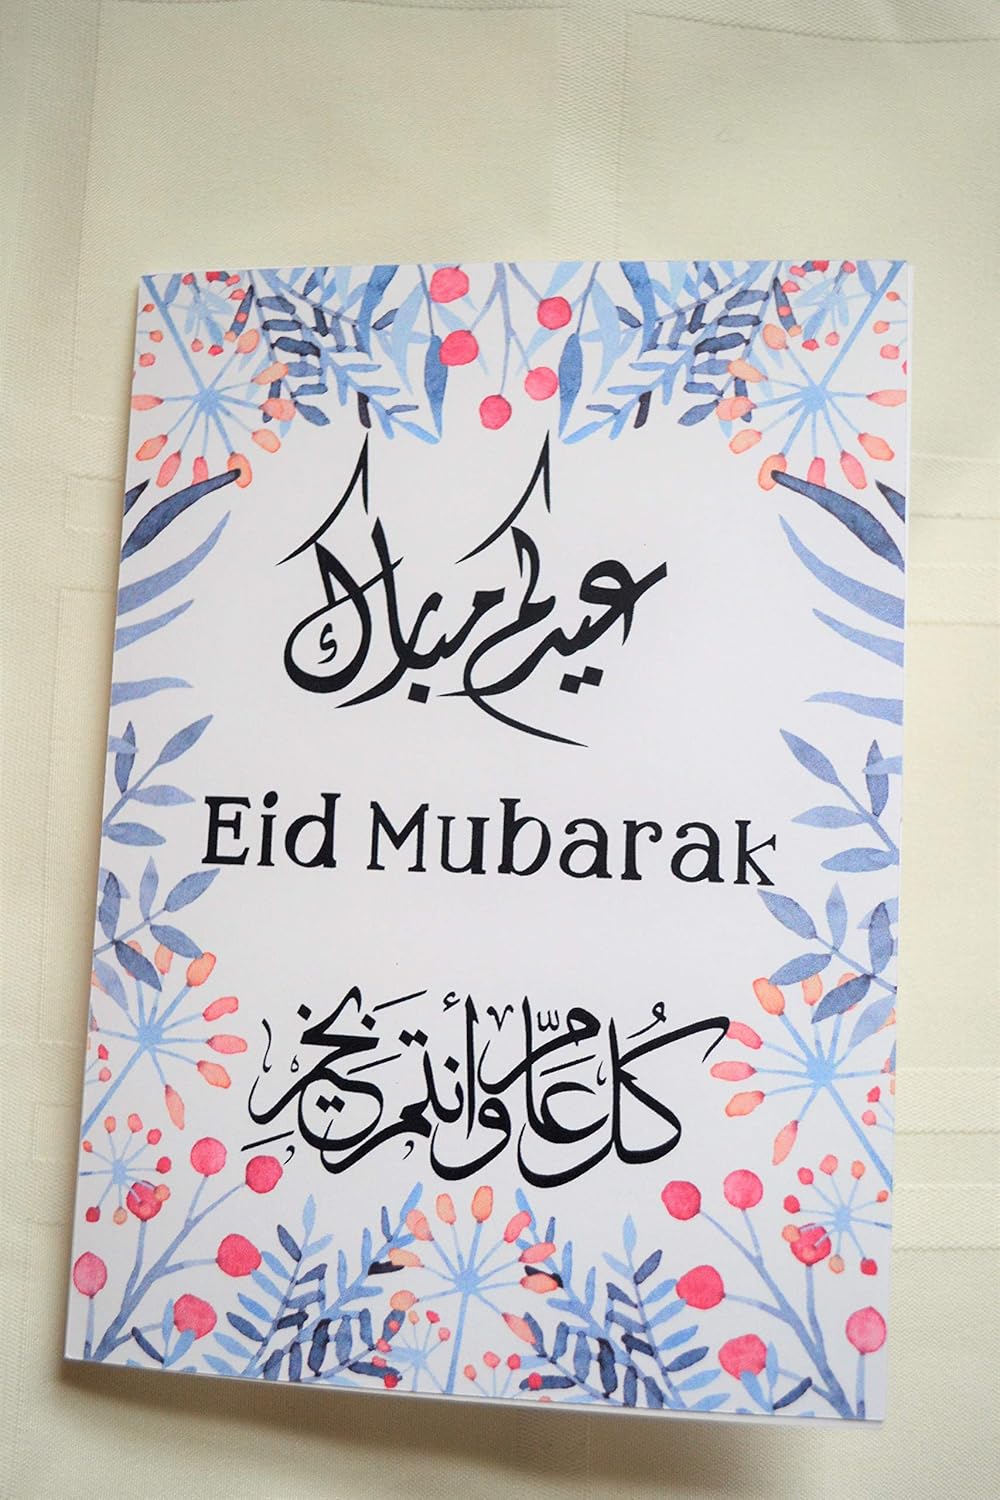 عيدكم مبارك
Eid Mubarak
كُل عَامّ وأنتم بخيرِ